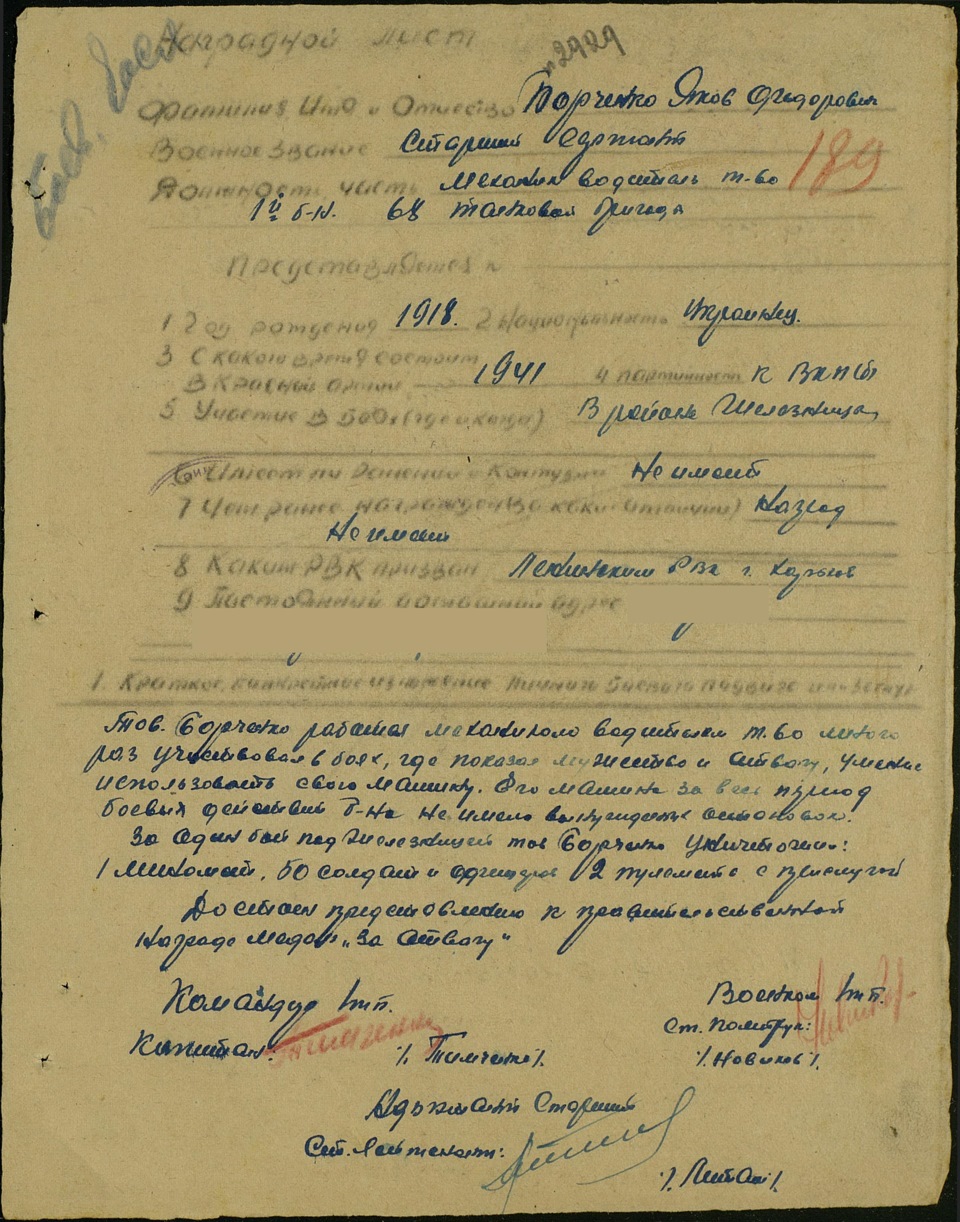 Наградной лист
№2929
Фамилия Имя и Отчество Борченко Яков Федорович
Военное Звание Старший Сержант
Должность часть Механик водитель т-60 189
1й б-н. 68 танковой бригады
Представляется к
1 Год рождения 1918. 2 Национальность Украинец.
3 С какого время состоит
В Красной армии 1941 4 партийность к ВКПБ
5 Участие в боях (где и когда) В районе Железница,
6 Имеет ли ранения и контузии Не имеет
7 Чем ранее награжден (за какие отличия) Наград
Не имеет
8 Каким РВК призван Ленинским РВК г. Харьков
9 Постоянный домашний адрес
1. Краткое, конкретное изложение личного боевого подвига или заслуг
Тов. Борченко работая механиком водителем т.60 много
раз участвовал в боях, где показал мужество и отвагу, умение
использовать свою машину. Его машина за весь период
боевых действий б-на не имела вынужденых остановок.
За один бой под Железницей тов Борченко уничтожил:
1 миномет, 50 солдат и офицеров 2 пулемета с прислугой
Достоен представлению к правительственной
награде медаль „За Отвагу"
Командир 1тб. Военком 1тб.
Ст. Политрук:
Капитан: /. Тимченко /. /. Новиков /.
Адъютант Старший
Ст. Лейтенант: